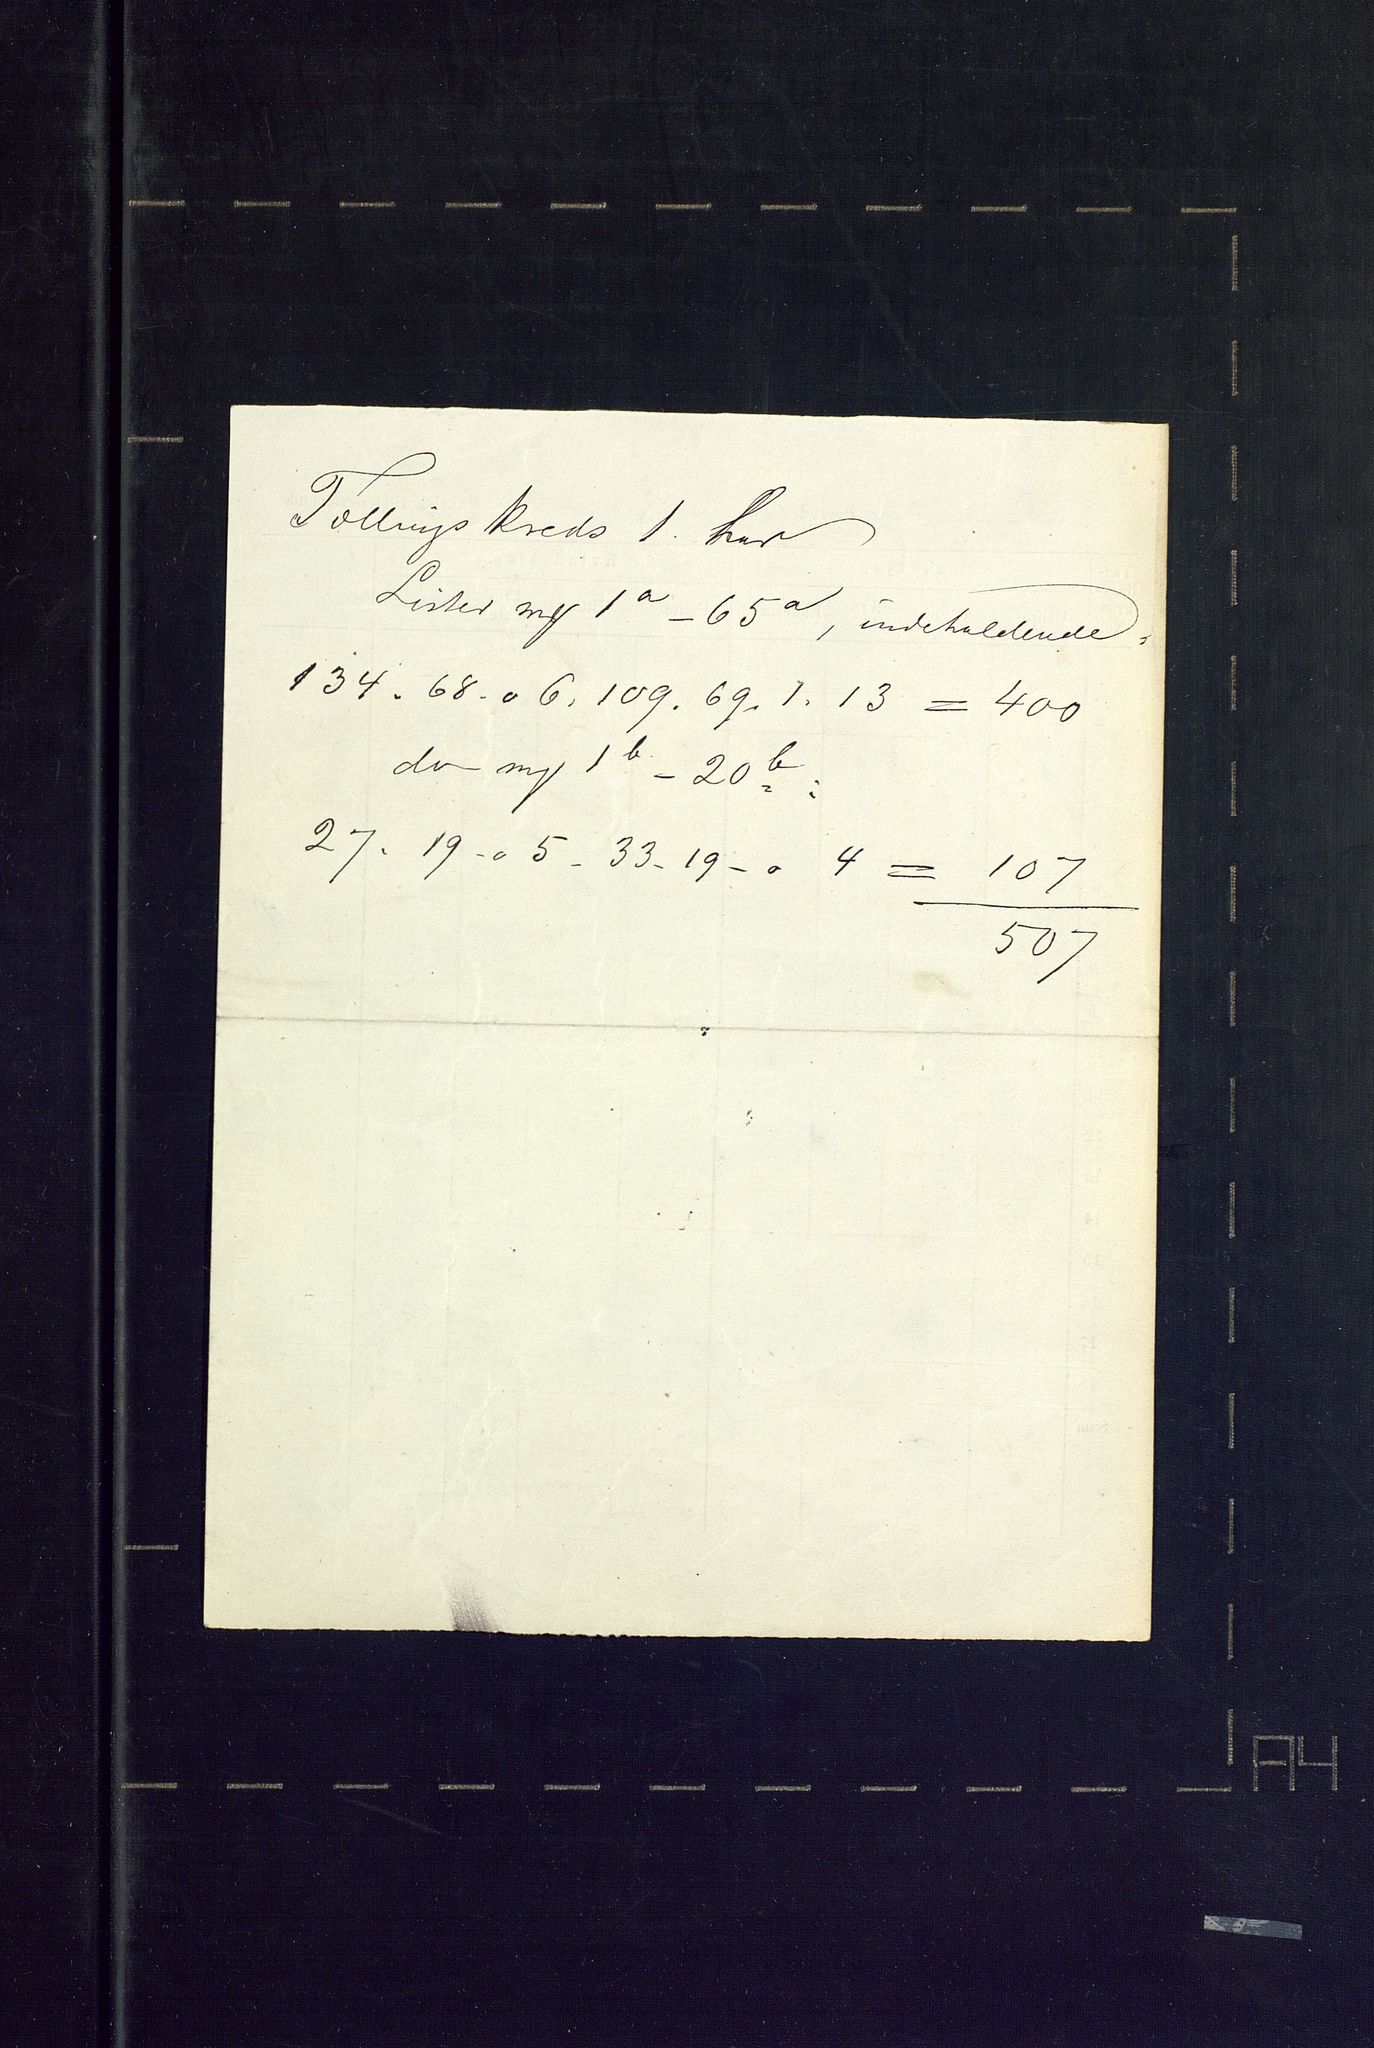 Tællingskreds 1. har
Lister mrk 1a – 65a, indeholdende:
134. 68. 0 6. 109. 69. 1. 13 = 400
do mrk 1b – 20b:
27. 19 - 0 5 - 33 - 19 - 0 4 = 107
507
14
15
17
A4